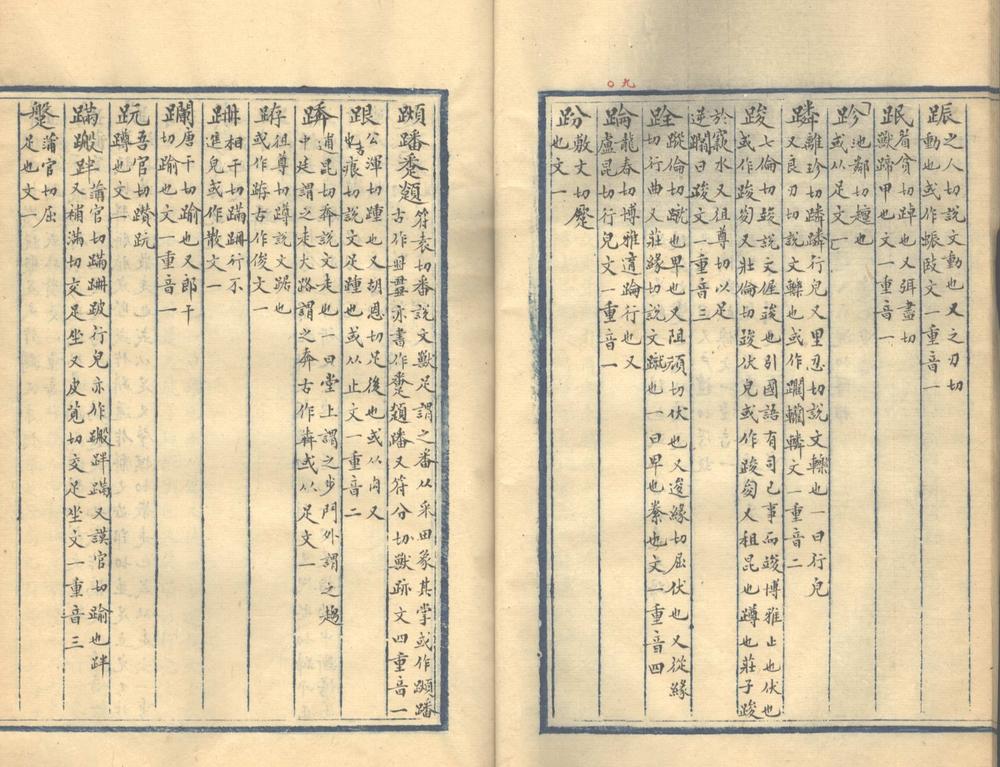 踬之人切說文動也又之刃切
動也或作䟴䟴文一重音一
眉貧切踔也又弭盡切
獸蹄甲也文一重音一
跈池鄰切䠫也
或从足文一
蹸離珍切蹸蹸行皃又里忍切說文轢也一曰行皃
又良刃切說文轢也或作躙轥轔文一重音二
踆七倫切踆說文偓竣也引國語有司已事而竣博雅止也伏也
或作踆夋又壯倫切踆伏皃或作踆夋又租昆也蹲也莊子踆
於窾水又徂尊切以足
逆蹋曰踆文一重音三
跧蹤倫切蹴也卑也又阻頑切伏也又逡緣切屈伏也又從緣
切行曲又莊緣切說文蹴也一曰卑也絭也文一重音四
踚龍春切博雅踚行也又
盧昆切行皃文一重音一
敷文切
也文一
九
蹞蹯番𨆌符袁切番說文獸足謂之番从釆田象其掌或作蹞蹯
古作𠔉𥸨亦書作𤲸𨆌蹯又符分切獸跡文四重音一
跟公渾切踵也又胡恩切足後也或从肉又
古痕切說文足踵也或从止文一重音二
逋昆切奔說文走也一曰堂上謂之步門外謂之趨
中廷謂之走大路謂之奔古作犇或从足文一
徂尊切蹲說文踞也
或作踆古作俊文一
跚相干切蹣跚行不
進皃或作散文一
躝唐干切踰也又郎干
切踰也文一重音一
䟦吾官切躦䟦
蹲也文一
蹣蹒跘蒲官切蹣跚跛行皃亦作蹒跘蹣又謨官切踰也跘
又補滿切交足坐又皮筧切交足坐文一重音三
蹩蒲官切屈
足也文一